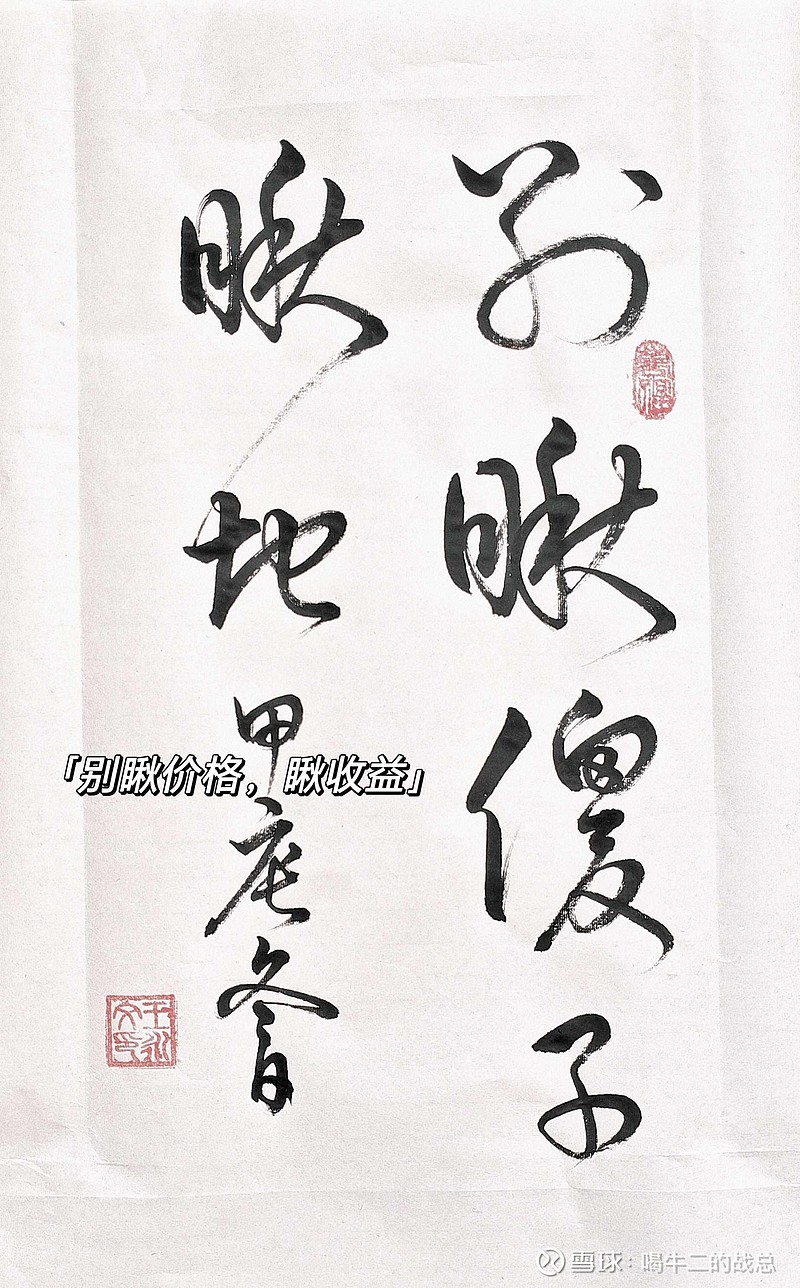 别瞅傻子
瞅地
甲辰冬月
「别瞅价格，瞅收益」
雪球：喝牛二的战总